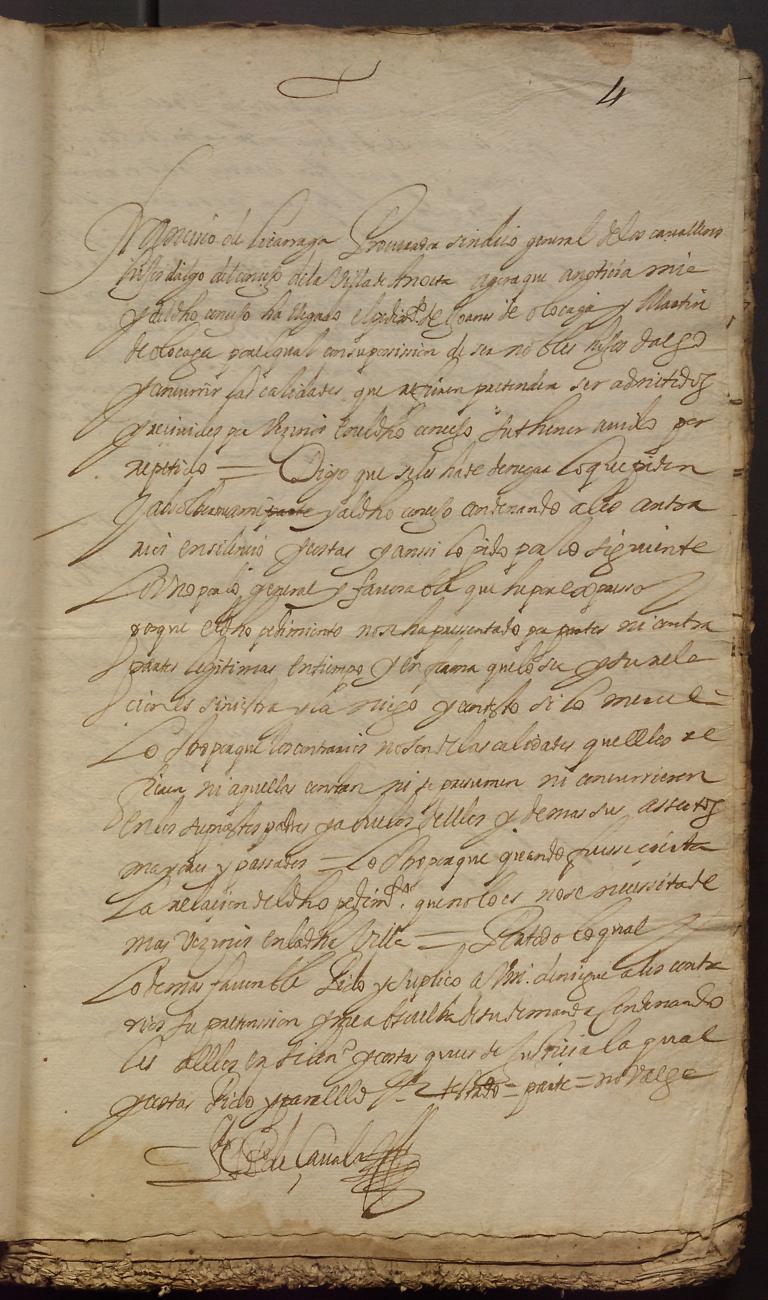 4
de Liçarraga Procurador sindico general de los cavalleros
hijosdalgo del conçejo de la Villa de Anoeta agora que a noticia mia
y del dho conçejo ha llegado el pedimto. de Joanes de olocaga y Martin
de olocaga por el qual con suposission de ser nobles hijos dalgo
y concurrir las calidades que refieren pretenden ser admitidos
y reciuidos por Vezinos en el dho conçejo su thenor auido por
repetido = Digo que se les ha de denegar lo que piden
y absoluer a mi parte y al dho conçejo condenando a los contra
rios en silencio y costas y anssi lo pido por lo siguiente
Lo Vno por lo general y fauorable que he por expresso
porque el dho pedimiento no se ha pressentado por partes ni contra
partes legitimas en tiempo y en forma que lo sea y su rela
cion es siniestra y la niego y contesto si lo mereçe =
Lo otro porque los contrarios no son de las calidades que ellos re
fieren ni aquellas constan ni se pressumen ni concurrieron
en los supuestos padres y abuelos dellos y demas sus
mayores y passados = Lo otro porque quando fuesse cierta
La relacion del dho pedimto. que no lo es no se necessita de
mas Vezinos en la dha Villa = Por todo lo qual
Lo demas fauorable Pido y suplico a Vm. deniegue a los contra
rios su pretenssion y me absuelba de su demanda Condenando
les a ellos en silenço. y costas pues es de Justicia la qual
y costas Pido y para ello = testado = parte = no valga